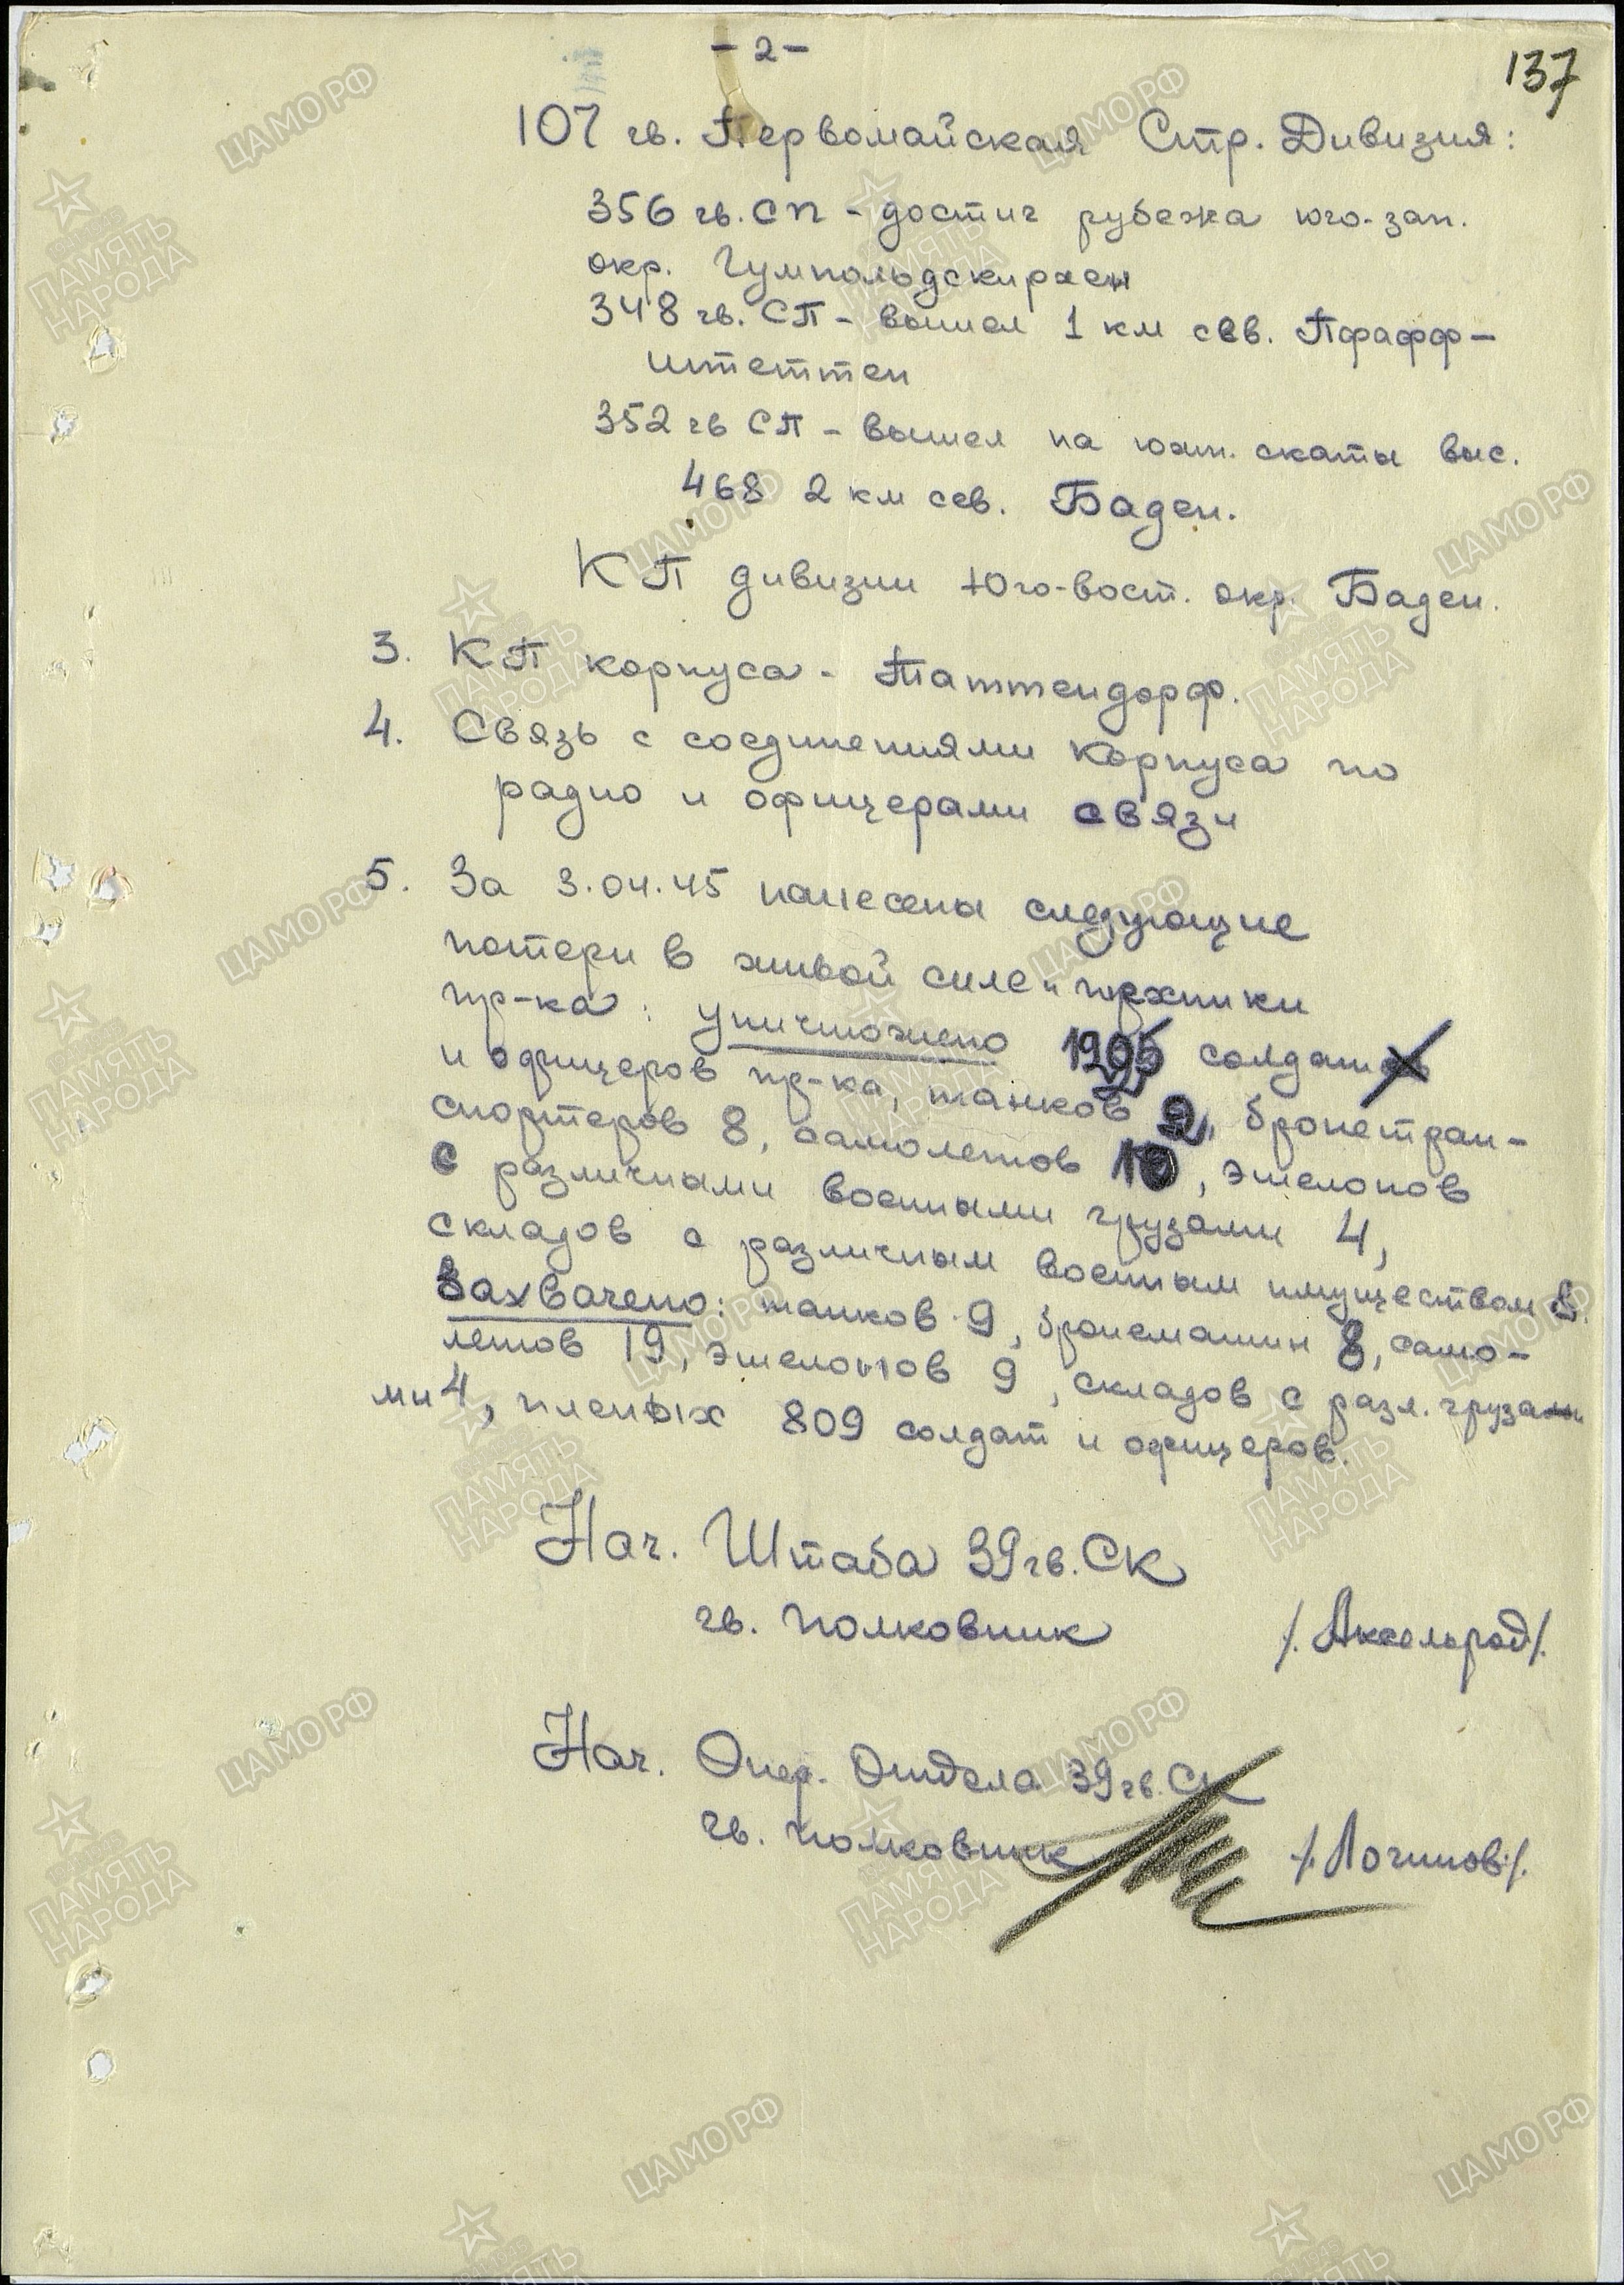 - 2 -
137
107 гв. Первомайская Стр. Дивизия:
356 гв. СП - достиг рубежа юго-зап.
окр. Гумпольдскирхен
348 гв. СП - вышел 1 км сев. Пфафф-
штеттен
352 гв СП - вышел на южн. скаты выс.
468 2 км сев. Баден.
КП дивизии Юго-вост. окр. Баден.
3. КП корпуса - Таттендорф.
4. Связь с соединениями корпуса по
радио и офицерами связи
5. За 3.04.45 нанесены следующие
потери в живой силе и техники
пр-ка: уничтожено 1905 солдат
и офицеров пр-ка, танков 2, бронетран-
спортеров 8, самолетов 10, эшелонов
с различными военными грузами 4,
складов с различным военным имуществом 8.
Захвачено: танков 9, бронемашин 8, само-
летов 19, эшелонов 9, складов с разл. груза
ми 4, пленых 809 солдат и офицеров.
Нач. Штаба 39 гв. СК
гв. полковник /. Аксельрод /.
Нач. Опер. Отдела 39 гв. СК
гв. полковник /. Логинов /.
ЦАМО РФ
ПАМЯТЬ НАРОДА